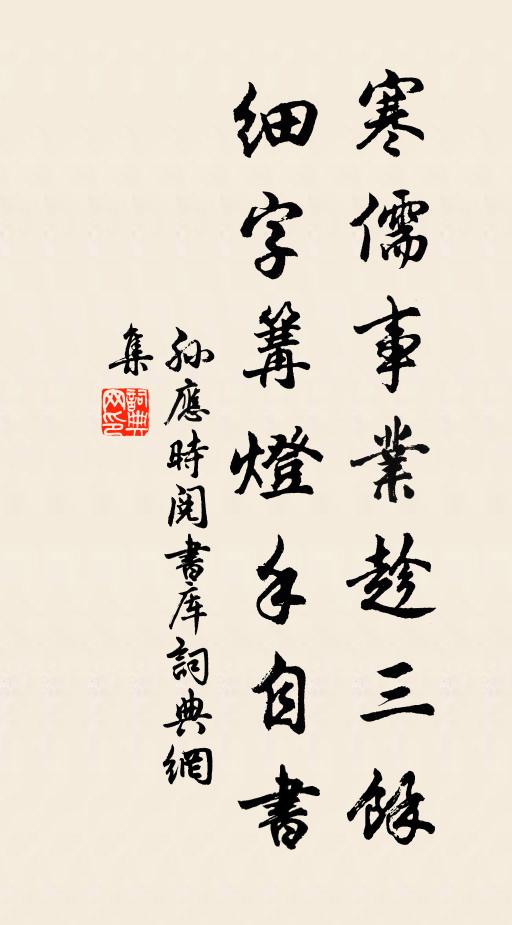 寒儒事業趁三餘
細字篝燈手自書
孙應時閱書库詞典網
集
詞典網印